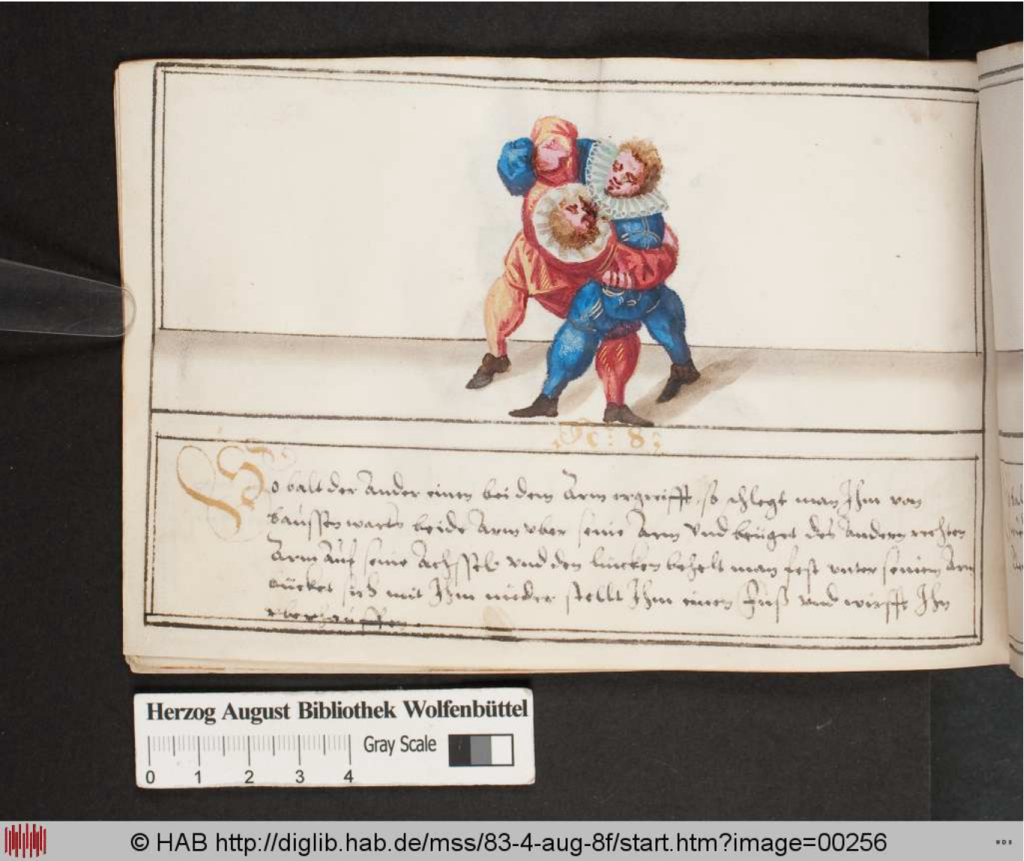 N: 8:
So balt der Ander einen bei dem Arm ergreifft, so schlegt man Ihm von
baussen warts beide Arm vber seine Arm vnd beuget des Andern rechten
Arm Auf seine Achssel vnd den lincken behelt man fest vnter seinem Arm
bücket sich mit Ihm nider stellt Ihm einen Fuß vnd wirfft Ihn
vberhauffen.
Herzog August Bibliothek Wolfenbüttel
Gray Scale
0 1 2 3 4
© HAB http://diglib.hab.de/mss/83-4-aug-8f/start.htm?image=00256